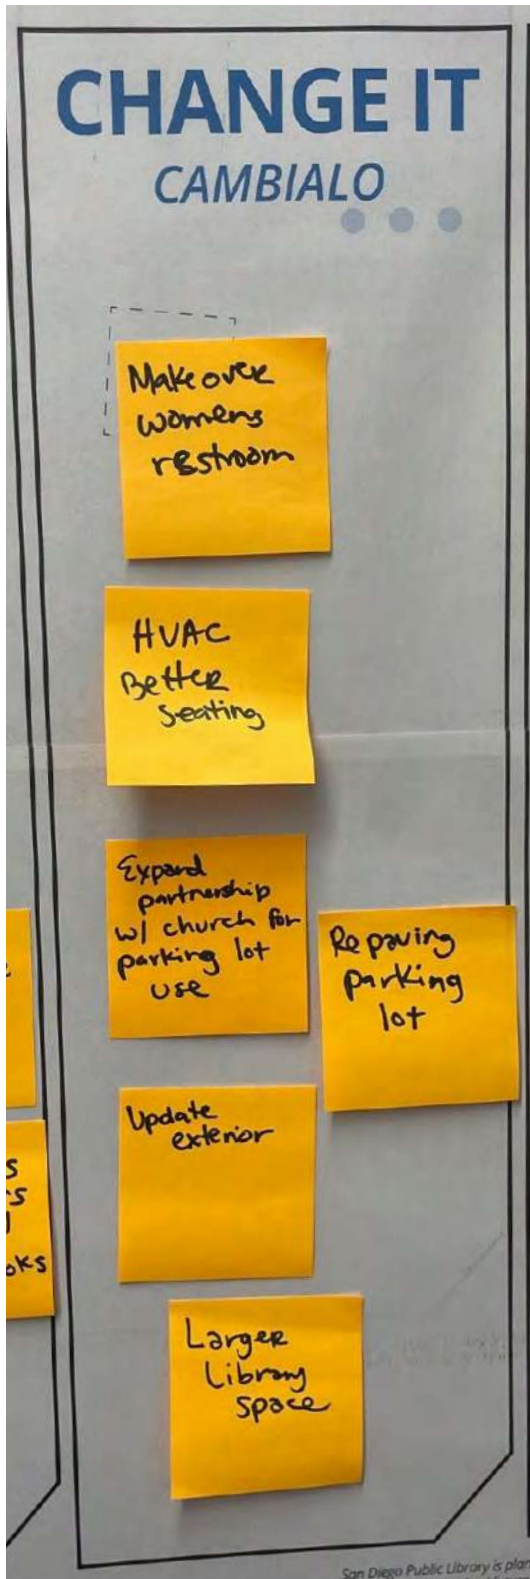 CHANGE IT
CAMBIALO
Make over
womens
restroom
HVAC
Better
Seating
Expand
partnership
w/ church for
parking lot
use
Repaving
parking
lot
Update
exterior
Larger
Library
Space
San Diego Public Library is plan